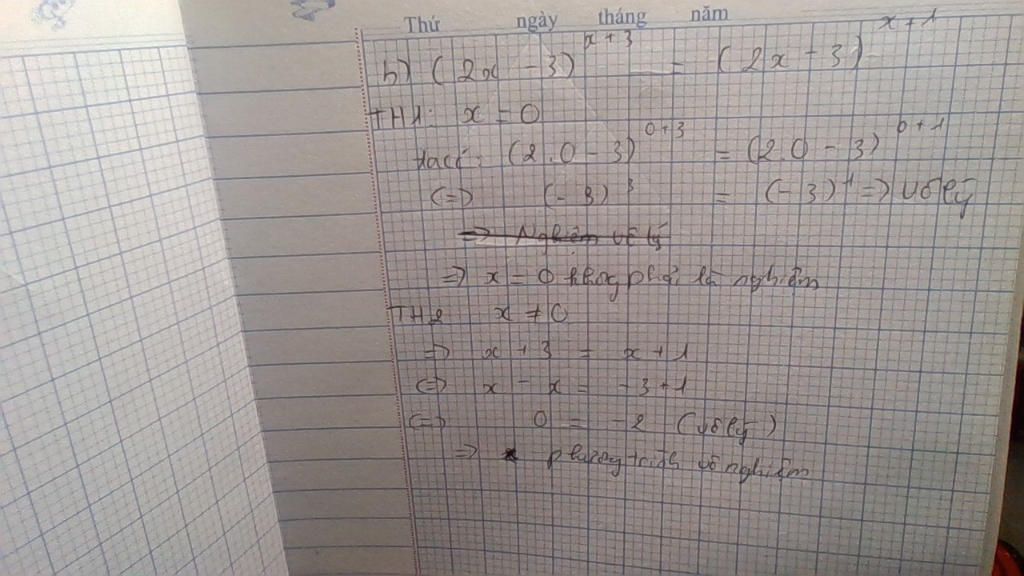 Thứ ngày tháng năm
b) (2x - 3)^{x+3} = (2x - 3)^{x+1}
TH1: x = 0
ta có: (2.0 - 3)^{0+3} = (2.0 - 3)^{0+1}
(=) (-3)^3 = (-3)^1 => vô lý
=> Nghiệm vô lý
=> x = 0 không phải là nghiệm
TH2 x ≠ 0
=> x + 3 = x + 1
(=) x - x = -3 + 1
(=) 0 = -2 (vô lý)
=> phương trình vô nghiệm